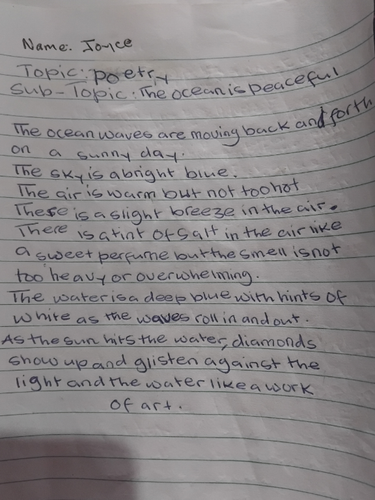 Name: Joyce
Topic: Poetry
Sub-Topic: The ocean is peaceful
The ocean waves are moving back and forth
on a sunny day.
The sky is a bright blue.
The air is warm but not too hot
There is a slight breeze in the air.
There is a tint of salt in the air like
a sweet perfume but the smell is not
too heavy or overwhelming.
The water is a deep blue with hints of
white as the waves roll in and out.
As the sun hits the water, diamonds
show up and glisten against the
light and the water like a work
of art.